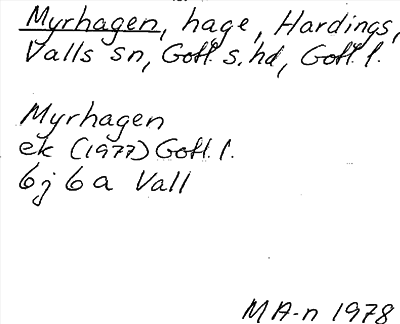 Myrhagen, hage, Hardings,
Valls sn, Gotl. s. hd, Gotl. l.
Myrhagen
ek (1977) Gotl. l.
6j 6a Vall
MA-n 1978